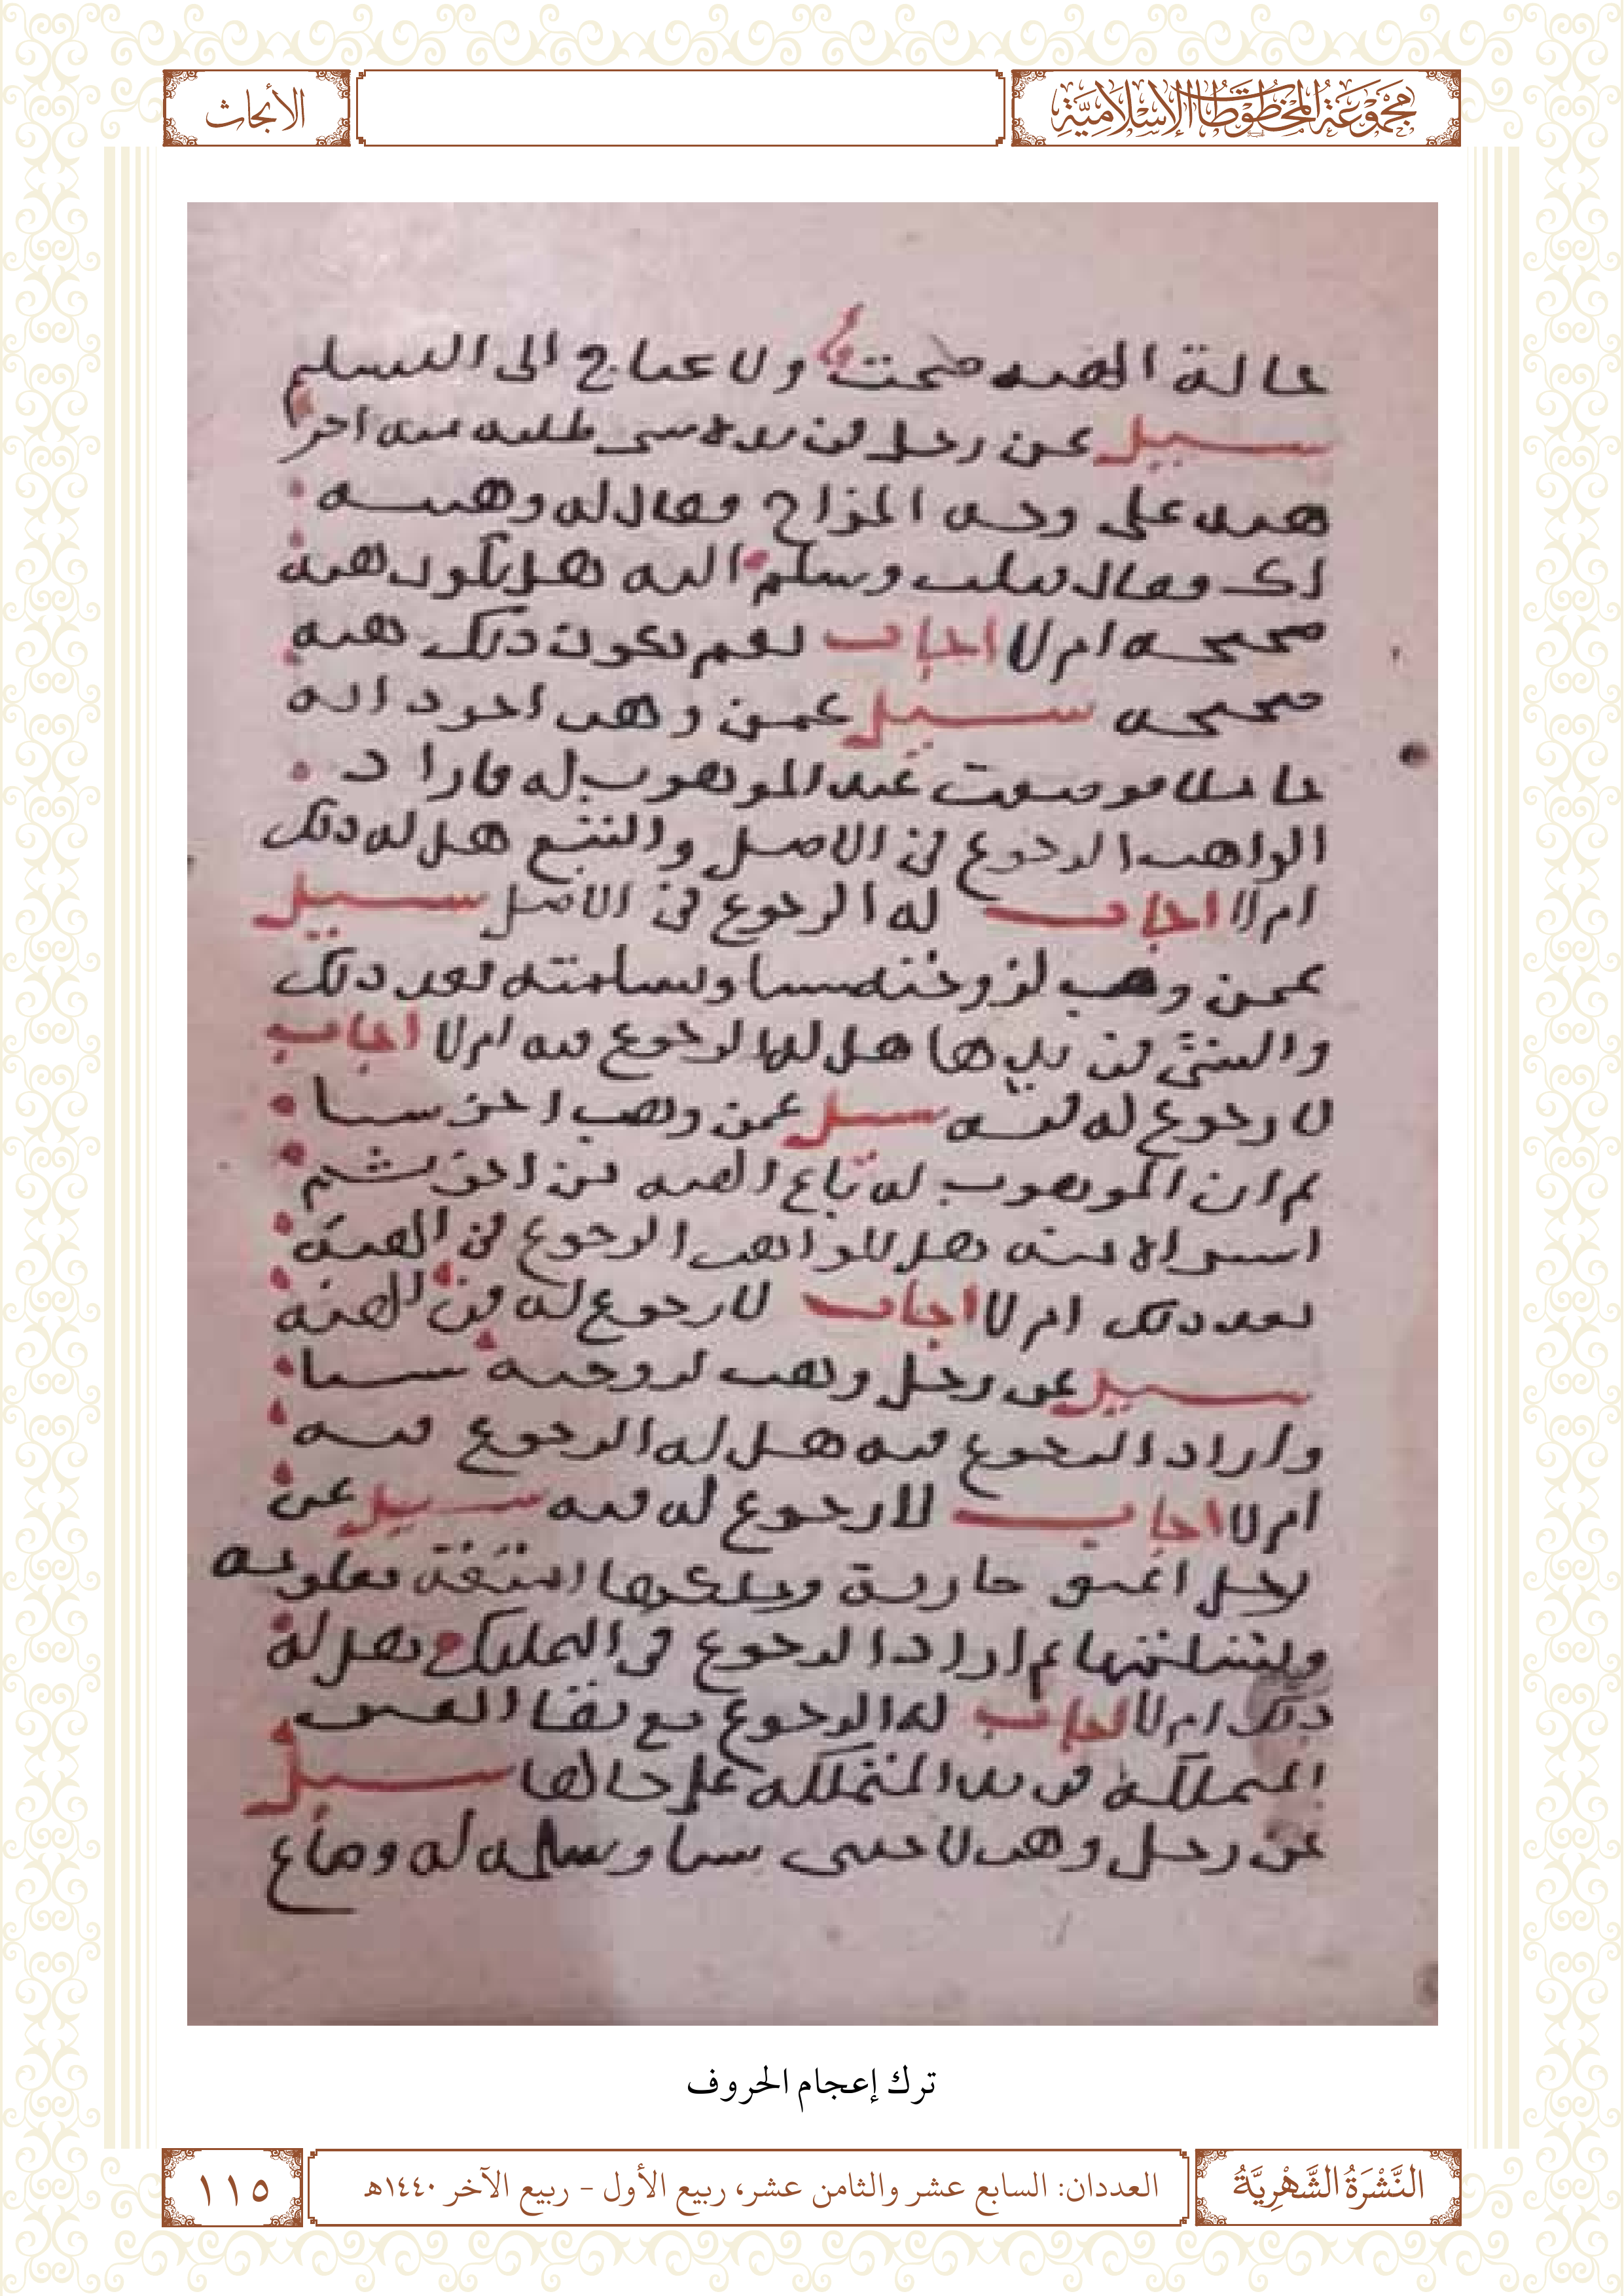 مَجْمُوعَةُ المَخْطُوطَاتِ الإِسْلَامِيَّةِ
الأبحاث
حالة الهبه صحت ولا يحتاج الى التسليم
سييل عن رجل في يده شي طلبه منه اخر
هبه على وجه المزاح فقال له وهبته
لك فقال قبلت وسلم اليه هل تكون هبه
صحيحه ام لا اجاب نعم تكون ذلك هبه
صحيحه سييل عمن وهب اخر دابه
حاملا فوضعت عند الموهوب له فاراد
الواهب الرجوع في الاصل والتبع هل له ذلك
ام لا اجاب له الرجوع في الاصل سييل
عمن وهب لزوجته شيا وتسلمته بعد ذلك
والشي في يدها هل له الرجوع فيه ام لا اجاب
لا رجوع له فيه سييل عمن وهب اخر شيا
ثم ان الموهوب له باع الهبه من اخر ثم
اشتراه منه هل للواهب الرجوع في الهبه
بعد ذلك ام لا اجاب لا رجوع له في الهبه
سييل عن رجل وهب لزوجته شيا
واراد الرجوع فيه هل له الرجوع فيه
ام لا اجاب لا رجوع له فيه سييل عن
رجل اعتق جارية وملكها امتعة معلومه
وتسلمتها ثم اراد الرجوع في التمليك هل له
ذلك ام لا اجاب له الرجوع مع بقا العين
المملكه في يد المتملكه على حالها سييل
عن رجل وهب لاجنبي شيا وسلمه له وضاع
ترك إعجام الحروف
النَّشْرَةُ الشَّهْرِيَّةُ
العددان: السابع عشر والثامن عشر، ربيع الأول - ربيع الآخر ١٤٤٠هـ
١١٥